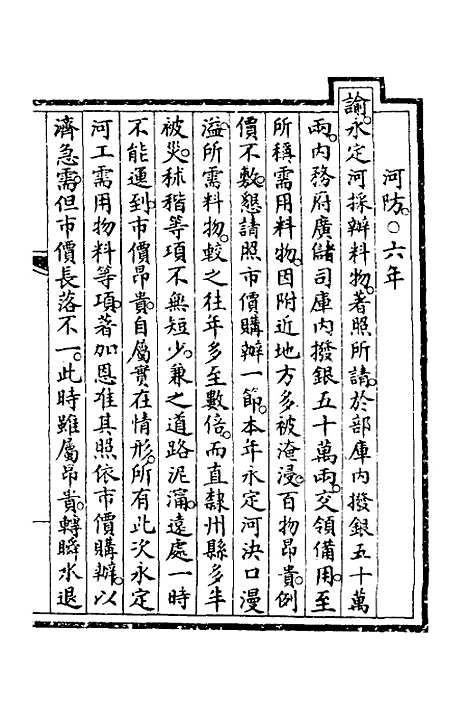 河防○六年
諭永定河採辦料物著照所請於部庫內撥銀五十萬
兩內務府廣儲司庫內撥銀五十萬兩交領備用至
所稱需用料物因附近地方多被淹浸百物昂貴例
價不敷懇請照市價購辦一節本年永定河決口漫
溢所需料物較之往年多至數倍而直隸州縣多半
被災秫稭等項不無短少兼之道路泥濘遠處一時
不能運到市價昂貴自屬實在情形所有此次永定
河工需用物料等項著加恩准其照依市價購辦以
濟急需但市價長落不一此時雖屬昂貴轉瞬水退